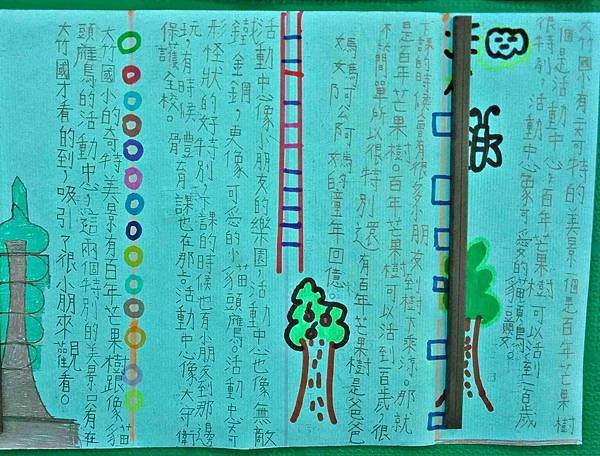 大竹國小有二奇特的美景一個是百年芒果樹
一個是活動中心百年芒果樹可以活到一百歲
很特別,活動中心象可愛的貓頭鷹
下課的時候會有很多小朋友到樹下乘涼。那就
是百年芒果樹。百年芒果樹可以活到一百歲,很
不簡單所以很特別還有百年芒果樹是爸爸
媽媽阿公阿媽的童年回憶。
活動中心像小朋友的樂園,活動中心也像無敵
鐵金鋼,更像可愛的小貓頭鷹。活動中心奇
形怪狀的好特別,下課的時候也有小朋友到那邊
玩,有時候體育課也在那上。活動中心像大守衛
保護全校。
大竹國小的奇特美景有百年芒果樹跟像貓
頭鷹的活動中心,這兩個特別的美景只有在
大竹國才看的到,吸引了很小朋來觀看。